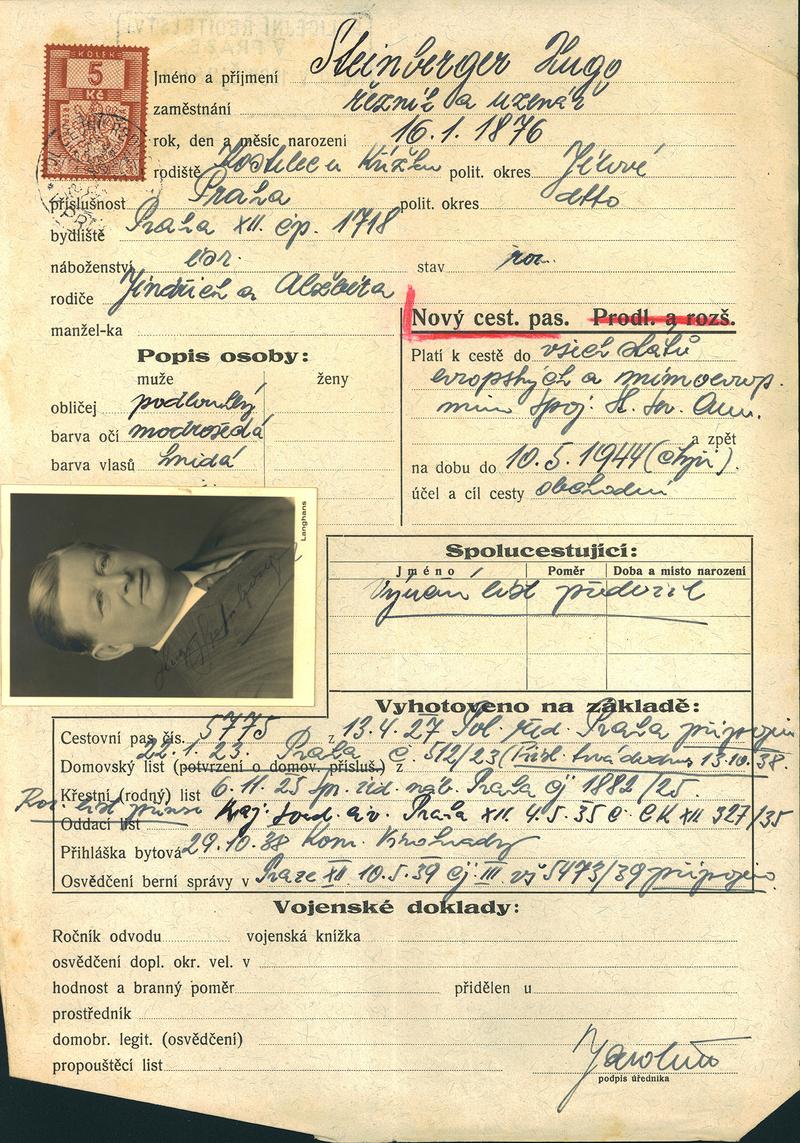 KOLEK
5
Kč
Jméno a příjmení Steinberger Hugo
zaměstnání řezník a uzenář
rok, den a měsíc narození 16.1.1876
rodiště Kostelec u Křížků polit. okres Jílové
příslušnost Praha polit. okres detto
bydliště Praha XII. čp. 1718
náboženství isr. stav roz.
rodiče Jindřich a Alžběta
manžel-ka
Nový cest. pas. Prodl. a rozš.
Popis osoby:
muže ženy
obličej podlouhlý
barva očí modrošedá
barva vlasů hnědá
Platí k cestě do všech států
evropských a mimoevrop.
mimo Spoj. st. sev. Am.
a zpět
na dobu do 10.5.1944 (čtyři).
účel a cíl cesty obchodní
Langhans
Hugo Steinberger
Spolucestující:
Jméno Poměr Doba a místo narození
list předložil
Vyhotoveno na základě:
Cestovní pas čís. 5775 z 13.4.27 Pol. řed. Praha připojen
22.1.23. Praha č. 512/23 13.10.38.
Domovský list (potvrzení o domov. přísluš.) z
Křestní (rodný) list 6.11.25 Praha čj 1882/25.
Roz. list
Oddací list Kraj. soud civ. Praha XII. 4.5.35 č. CK XII 327/35
Přihláška bytová 29.10.38 Kom. Vinohrady
Osvědčení berní správy v Praze XII 10.5.39 čj. III 5473/39 připojeno
Vojenské doklady:
Ročník odvodu vojenská knížka
osvědčení dopl. okr. vel. v
hodnost a branný poměr přidělen u
prostředník
domobr. legit. (osvědčení)
propouštěcí list
podpis úředníka